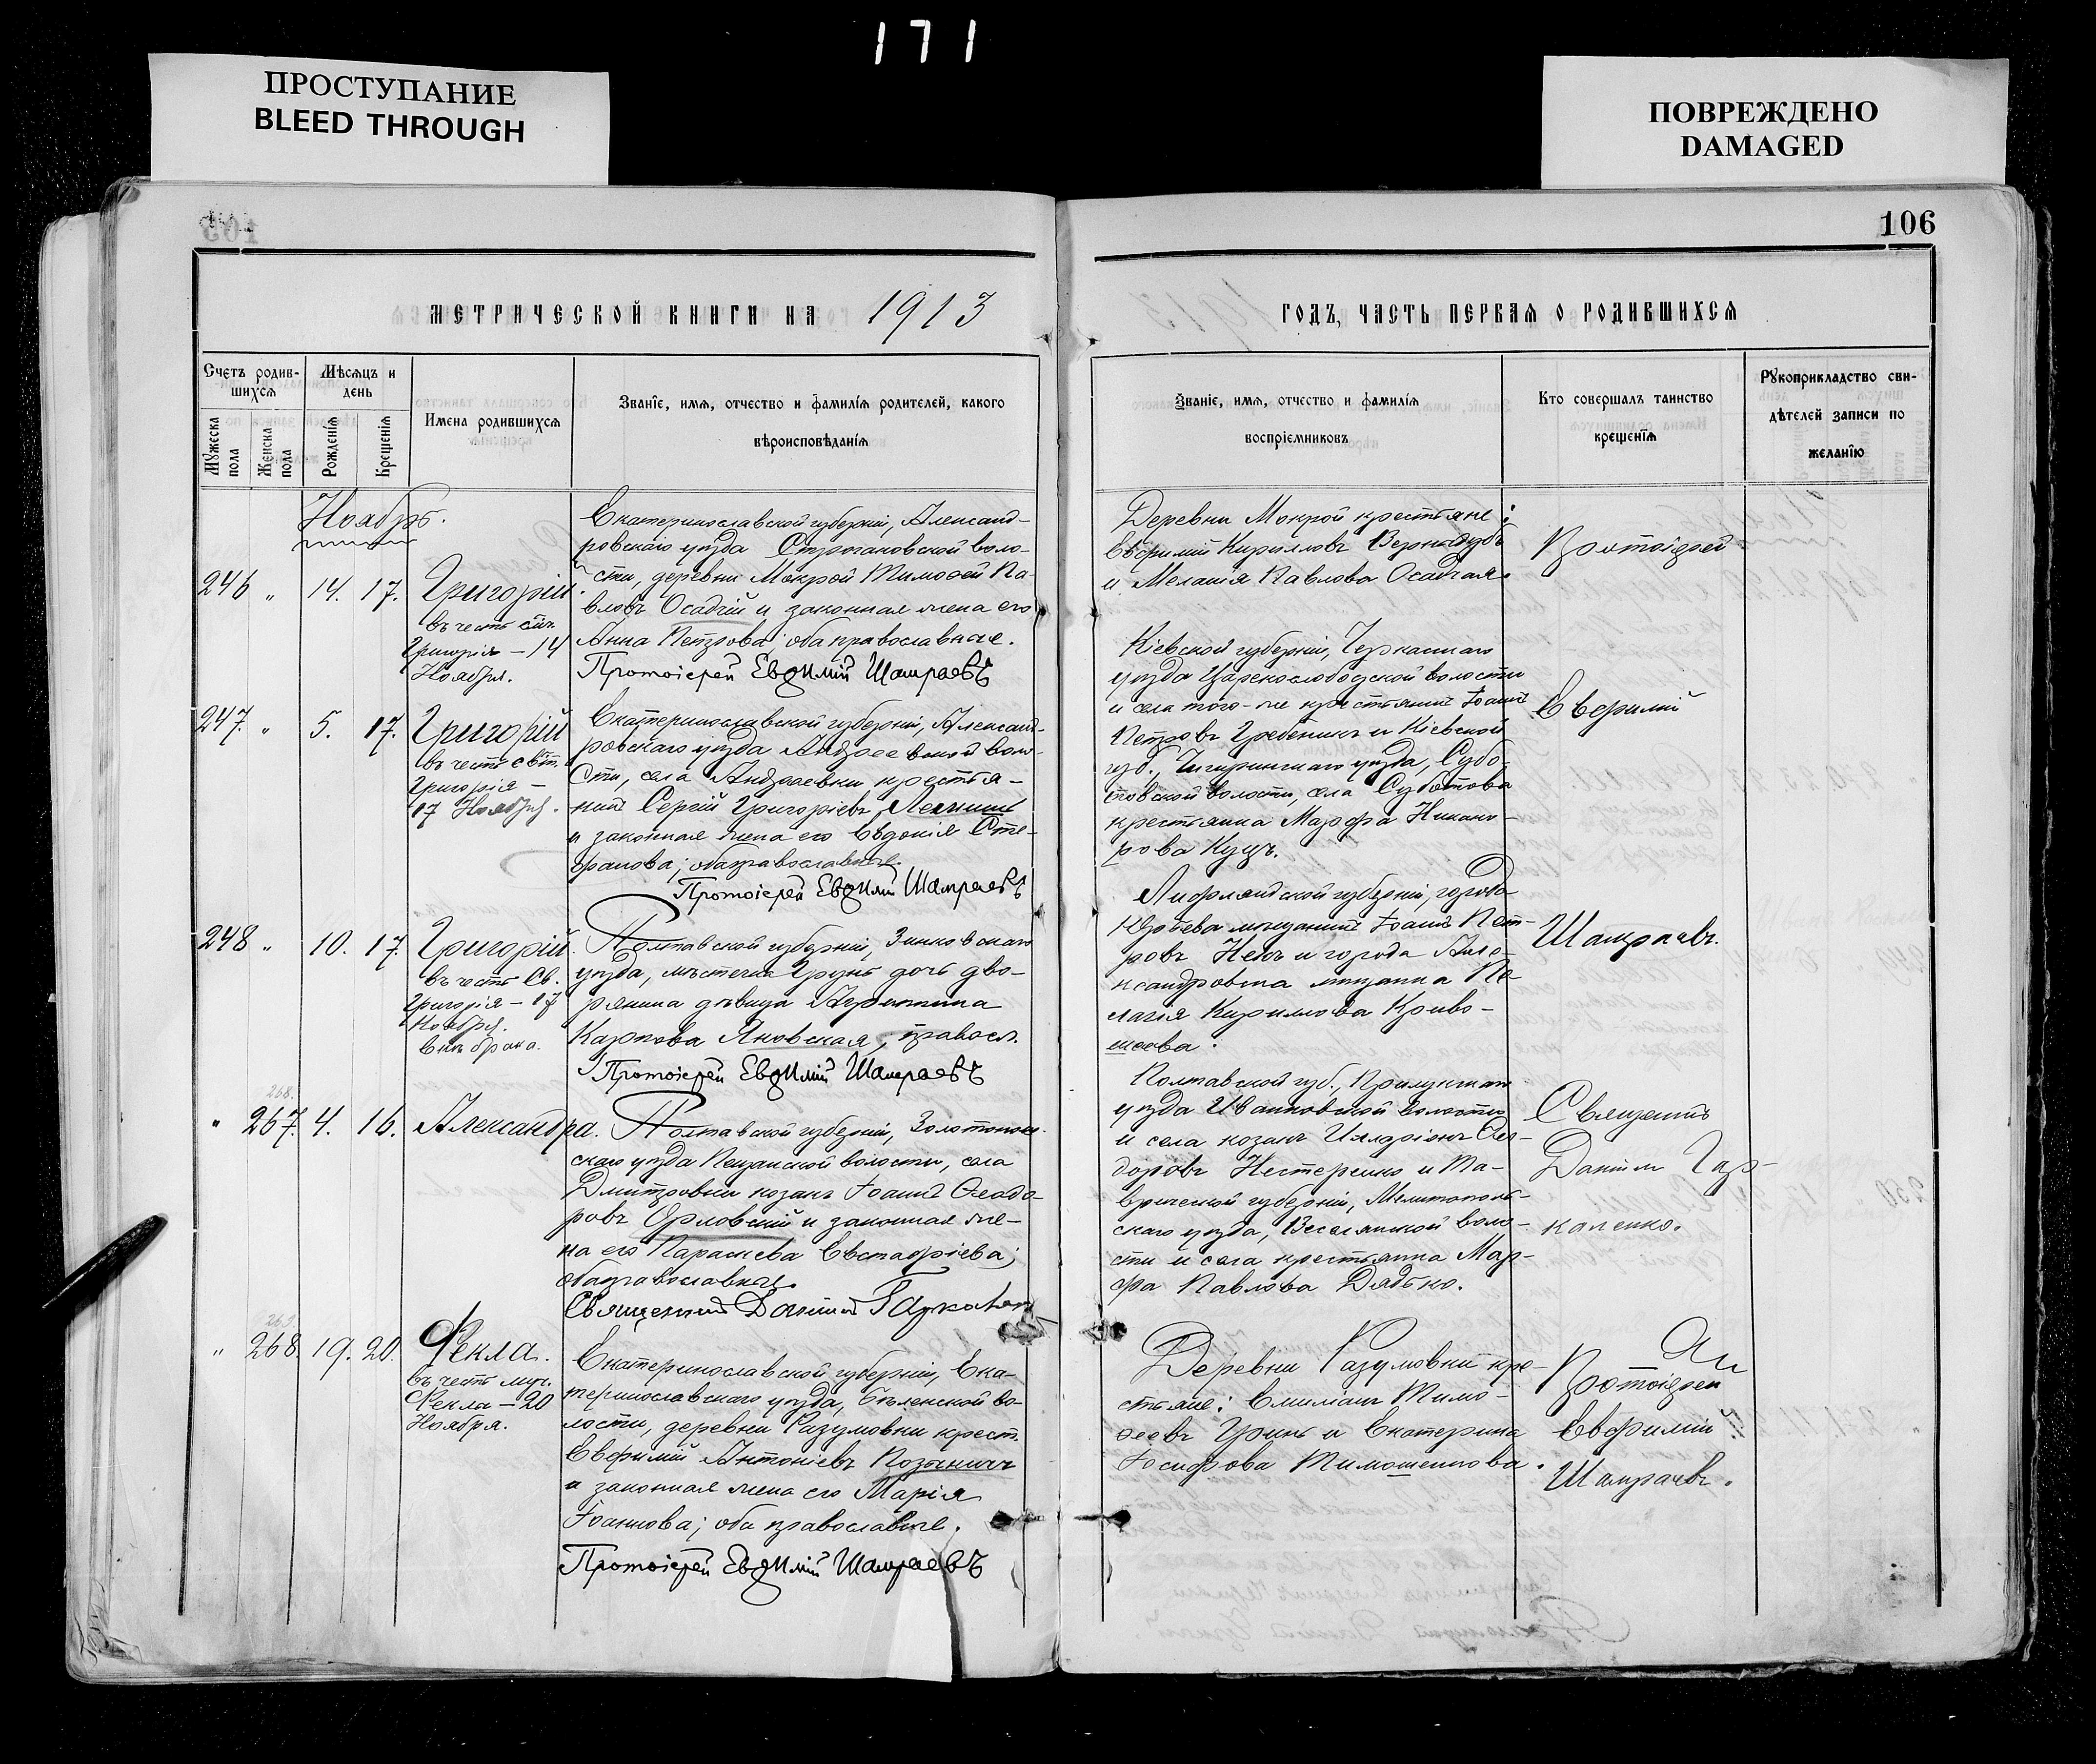 171
ПРОСТУПАНИЕ
BLEED THROUGH
ПОВРЕЖДЕНО
DAMAGED
106
МЕТРИЧЕСКОЙ КНИГИ НА 1913
ГОДЪ, ЧАСТЬ ПЕРВАЯ О РОДИВШИХСЯ
Счетъ родив-
шихся
Мужеска
пола
Женска
пола
Мѣсяцъ и
день
Рожденія
Крещенія
Имена родившихся
Званіе, имя, отчество и фамилія родителей, какого
вѣроисповѣданія
Званіе, имя, отчество и фамилія
воспріемниковъ
Кто совершалъ таинство
крещенія
Рукоприкладство сви-
дѣтелей записи по
желанію
Ноябрь.
246 " 14. 17. Григорій.
въ честь
Григорія – 14
Ноября.
Екатеринославской губерніи, Александ-
ровскаго уѣзда Строгановской воло-
сти, деревни Мокрой Тимоѳей Па-
вловъ Осадчій и законная жена его
Анна Петрова; оба православные.
Протоіерей Евѳимій Шамраевъ
Деревни Мокрой крестьяне:
Евфимій Кирилловъ Вернидубъ
и Меланія Павлова Осадчая.
Протоіерей
247. " 5. 17. Григорій
въ честь свят.
Григорія –
17 Ноября.
Екатеринославской губерніи, Александ-
ровскаго уѣзда Андреевской воло-
сти, села Андреевки крестья-
нинъ Сергій Григоріевъ
и законная жена его Евдокія Сте-
фанова; оба православные.
Протоіерей Евѳимій Шамраевъ
Кіевской губерніи, Черкаскаго
уѣзда Царекослободской волости
и села того-же крестьянинъ Іоаннъ
Петровъ Гребеникъ и Кіевской
губ., Чигиринскаго уѣзда, Субо-
товской волости, села Суботова
крестьянка Марфа Никано-
рова Куцъ.
Евфимій
248 " 10. 17. Григорій.
въ честь Св.
Григорія – 17
Ноября.
Внѣ брака.
Полтавской губерніи, Зиньковскаго
уѣзда, мѣстечка Грунь дочь дво-
рянина дѣвица Агриппина
Карпова Яновская, правосл.
Протоіерей Евѳимій Шамраевъ
Лифляндской губерніи, города
Юрьева мѣщанинъ Іоаннъ Пет-
ровъ и города Але-
ксандровска мѣщанка Пе-
лагія Кириллова Криво-
шеева.
Шамраевъ.
268.
" 267. 4. 16. Александра.
Полтавской губерніи, Золотонош-
скаго уѣзда Пещанской волости, села
Дмитровки козакъ Іоаннъ Ѳеодо-
ровъ Орловскій и законная же-
на его Параскева Евстафіева;
оба православные.
Священникъ Даніилъ Гаркаленко
Полтавской губ., Прилукскаго
уѣзда Иванковской волости
и села козакъ Иларіонъ
доровъ Нестеренко и Та-
врической губерніи, Мелитополь-
скаго уѣзда, Веселянской воло-
сти и села крестьянка Мар-
фа Павлова Дядько.
Священникъ
Даніилъ Гар-
каленко.
269.
" 268. 19. 20. Фекла.
въ честь муч.
Феклы – 20
Ноября.
Екатеринославской губерніи, Ека-
теринославскаго уѣзда, Бѣленской во-
лости, деревни Разумовки крест.
Евфимій Антоніевъ
и законная жена его Марія
Іоаннова; оба православные.
Протоіерей Евѳимій Шамраевъ
Деревни Разумовки кре-
стьяне: Емиліанъ Тимо-
ѳеевъ Гринь и Екатерина
Іосифова Тимошенкова.
Протоіерей
Евфимій
Шамраевъ.